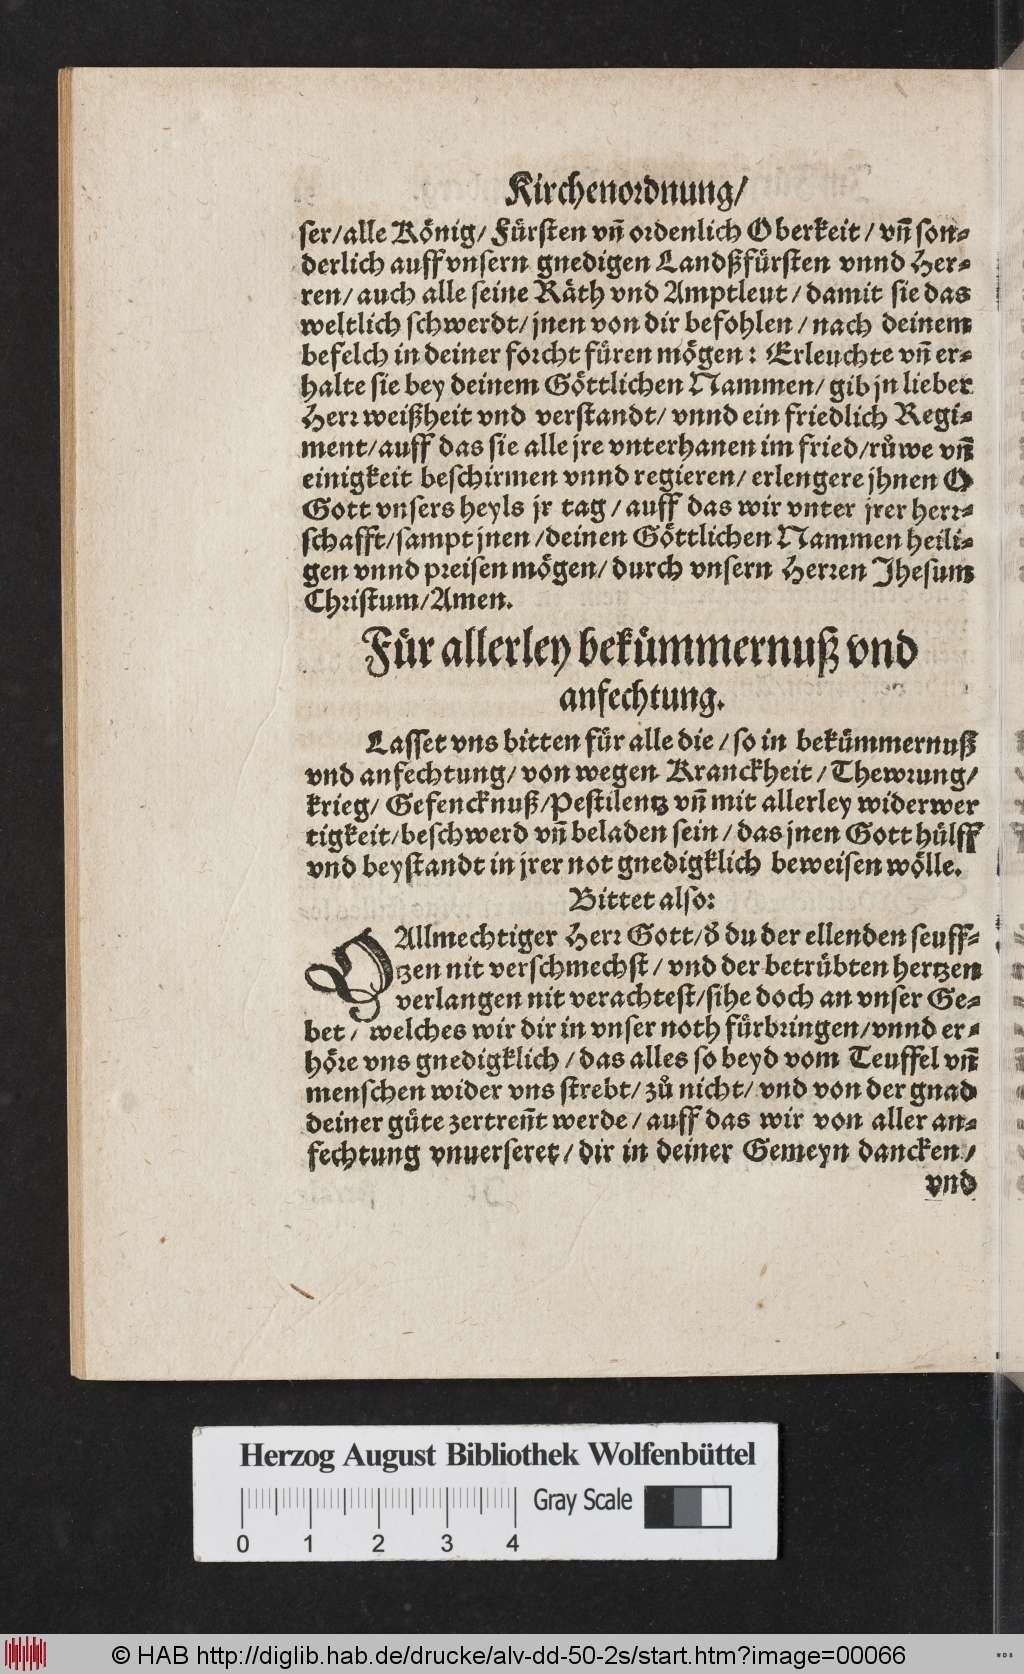 Kirchenordnung/
ser/alle König/ Fürsten vñ ordenlich Oberkeit/ vñ son-
derlich auff vnsern gnedigen Landßfürsten vnnd Her-
ren/ auch alle seine Räth vnd Amptleut/ damit sie das
weltlich schwerdt/ jnen von dir befohlen/ nach deinem
befelch in deiner forcht füren mögen: Erleuchte vñ er-
halte sie bey deinem Göttlichen Nammen/ gib jn lieber
Herr weißheit vnd verstandt/ vnnd ein friedlich Regi-
ment/auff das sie alle jre vnterhanen im fried/růwe vñ
einigkeit beschirmen vnnd regieren/ erlengere jhnen O
Gott vnsers heyls jr tag/ auff das wir vnter jrer herr-
schafft/sampt jnen/deinen Göttlichen Nammen heili-
gen vnnd preisen mögen/ durch vnsern Herren Jhesum
Christum/Amen.
Für allerley bekümmernuß vnd
anfechtung.
Lasset vns bitten für alle die/ so in bekümmernuß
vnd anfechtung/ von wegen Kranckheit/ Thewrung/
krieg/ Gefencknuß/Pestilentz vñ mit allerley widerwer
tigkeit/beschwerd vñ beladen sein/ das jnen Gott hülff
vnd beystandt in jrer not gnedigklich beweisen wölle.
Bittet also:
O Allmechtiger Herr Gott/ð du der ellenden seuff-
tzen nit verschmechst/ vnd der betrübten hertzen
verlangen nit verachtest/sihe doch an vnser Ge-
bet/ welches wir dir in vnser noth fürbringen/vnnd er-
höre vns gnedigklich/ das alles so beyd vom Teuffel vñ
menschen wider vns strebt/ zů nicht/ vnd von der gnad
deiner güte zertreñt werde/ auff das wir von aller an-
fechtung vnuerseret/ dir in deiner Gemeyn dancken/
vnd
Herzog August Bibliothek Wolfenbüttel
Gray Scale
0 1 2 3 4
© HAB http://diglib.hab.de/drucke/alv-dd-50-2s/start.htm?image=00066